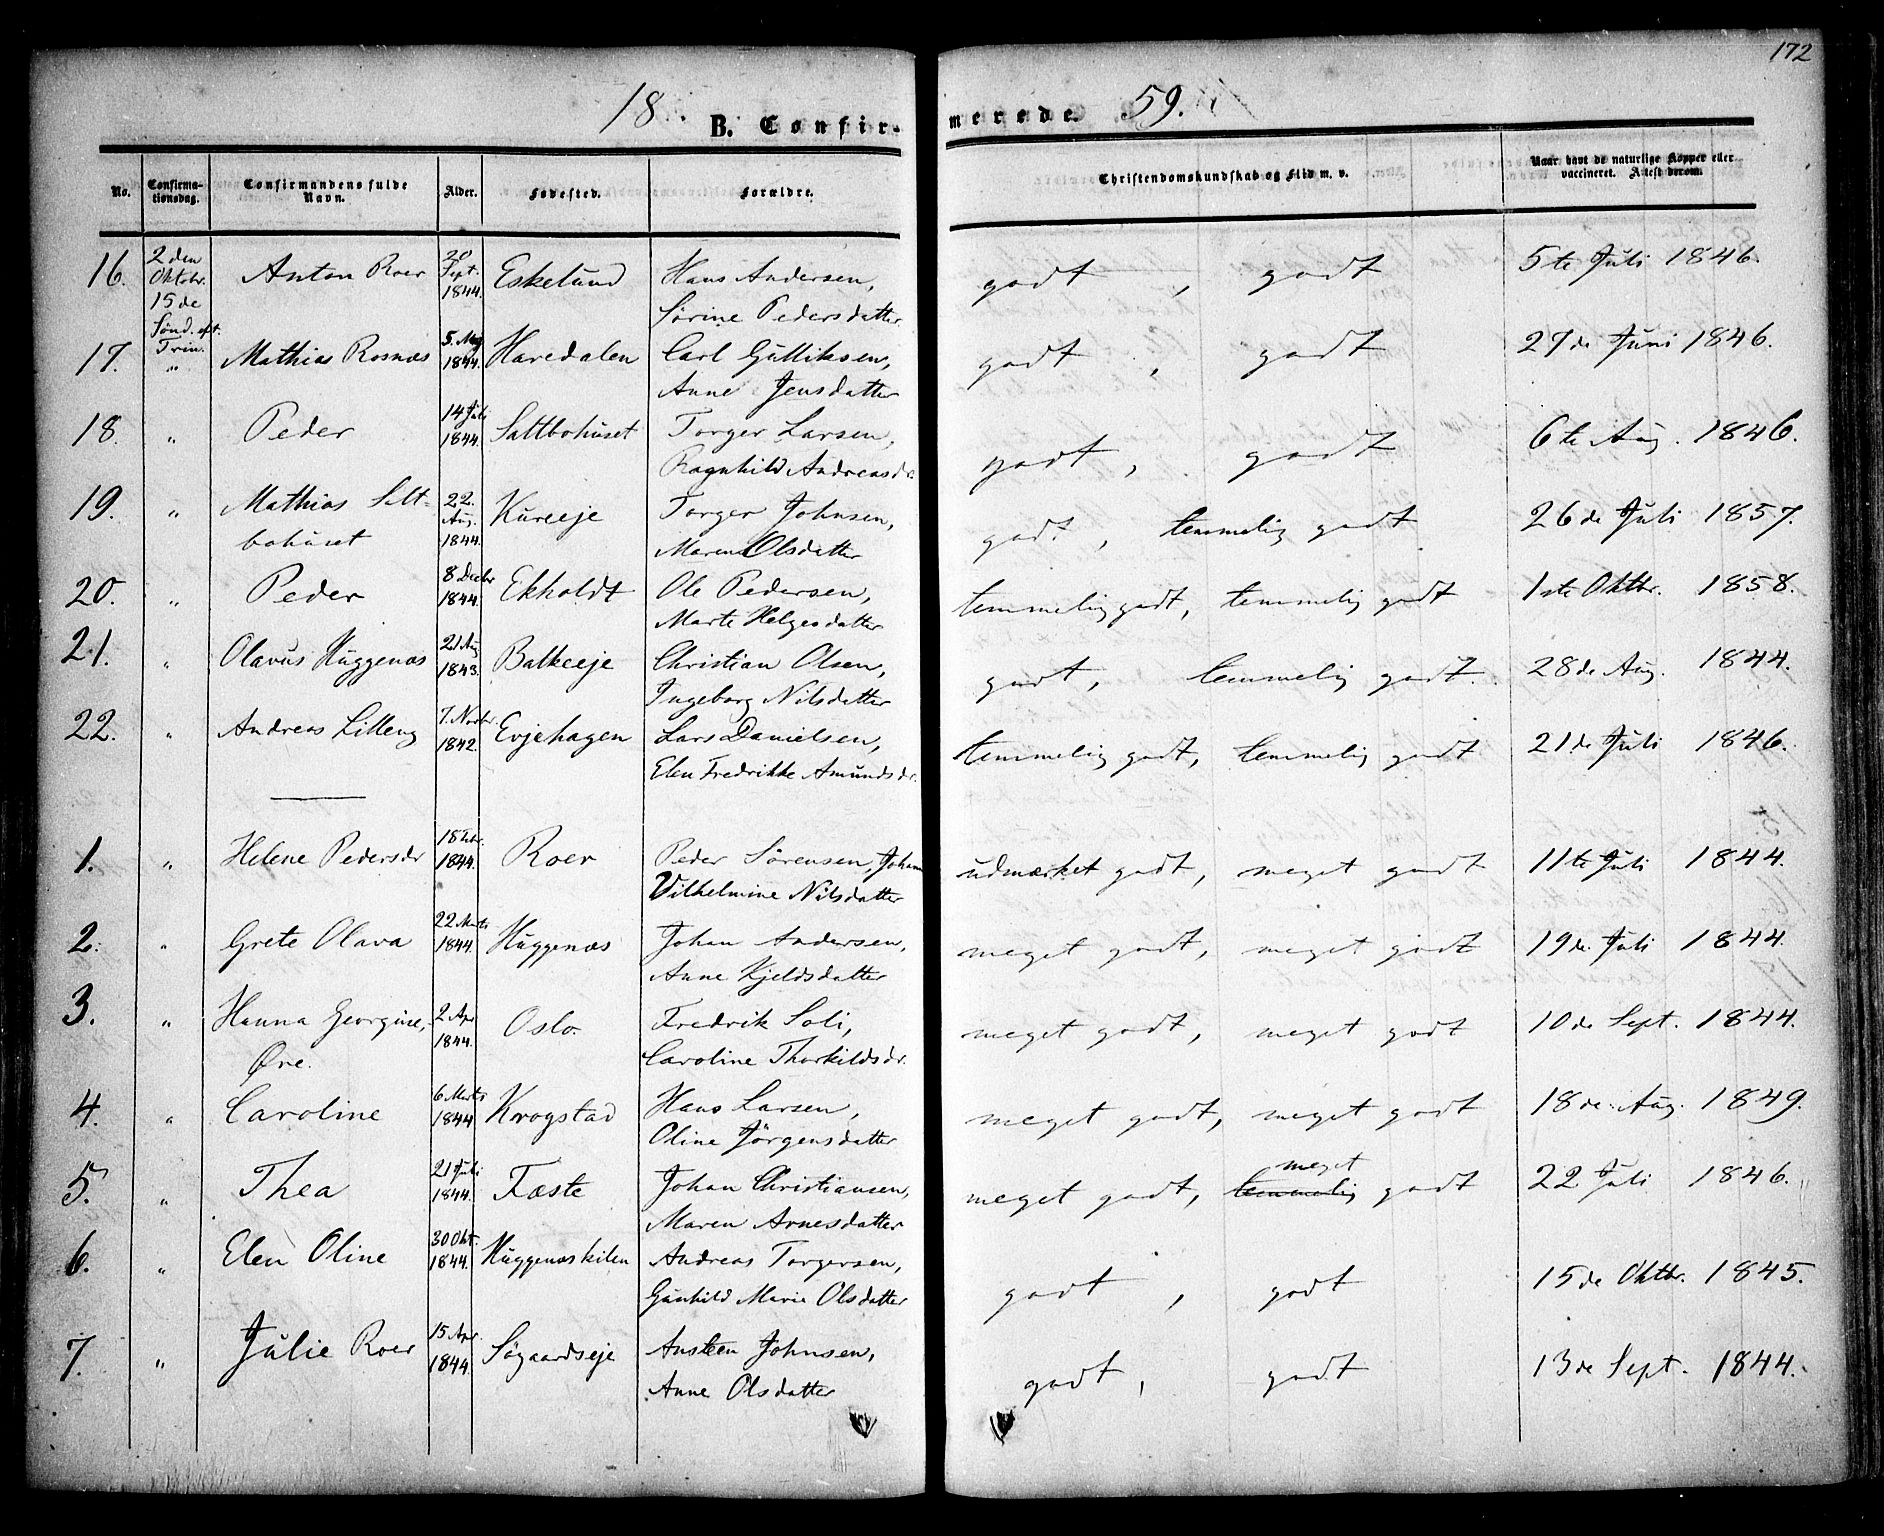 172
18 B. Confirmerede 59.
No. Confirmationsdag. Confirmandens fulde Navn. Alder. Fødested. Forældre. Christendomskundskab og Flid m. v. Naar havt de naturlige Kopper eller vaccineret. Attest derom.
16. 2 den Oktobr. 15 de Sønd. eft. Trin. Anton Roer 20 Sept. 1844. Eskelund Hans Andersen, godt, godt 5te Juli 1846.
Sørine Pedersdatter
17. " Mathias Rosnæs 5. Maj 1844. Haredalen Carl Gulliksen, godt, godt 27de Juni 1846.
Anne Jensdatter
18. " Peder 14 Juli 1844. Saltbohuset Torger Larsen, godt, godt 6te Aug. 1846.
Ragnhild Andreasdr.
19. " Mathias Salt- 22. Aug. 1844. Kureeje Torger Johnsen, godt, temmelig godt 26de Juli 1857.
bohuset Maren Olsdatter
20. " Peder 8 Decbr 1844. Ekholdt Ole Pedersen, temmelig godt, temmelig godt 1ste Oktbr. 1858.
Marte Helgesdatter
21. " Olavus Huggenæs 21 Aug 1843. Balkeeje Christian Olsen, godt, temmelig godt. 28de Aug. 1844.
Ingeborg Nilsdatter
22. " Andreas Lilleng 7. Novbr. 1842. Evjehagen Lars Danielsen, temmelig godt, temmelig godt 21de Juli 1846.
Elen Fredrikke Amundsdr.
1. " Helene Pedersdr 18 Febr. 1844. Roer Peder Sørensen, Johan udmærket godt, meget godt 11te Juli 1844.
Vilhelmine Nilsdatter
2. " Grete Olava 22 Marts 1844. Huggenæs Johan Andersen, meget godt, meget godt 19de Juli 1844.
Anne Kjeldsdatter
3. " Hanna Georgine, 2 Apr 1844. Oslo. Fredrik Soli, meget godt, meget godt 10de Sept. 1844.
Øre. Caroline Thorkildsdr.
4. " Caroline 6 Marts 1844 Krogstad Hans Larsen, meget godt, meget godt 18de Aug. 1849.
Oline Jörgensdatter
5. " Thea 21 Juli 1844. Fæste Johan Christiansen, meget godt, temmelig meget godt 22 Juli 1846.
Maren Arnesdatter
6. " Elen Oline 30 Okt. 1844. Huggenæskilen Andreas Torgersen, godt, godt 15de Oktbr. 1845.
Gunhild Marie Olsdatter
7. " Julie Roer 15 Apr. 1844. Sögaardseje Ansteen Johnsen, godt, godt 13de Sept. 1844.
Anne Olsdatter